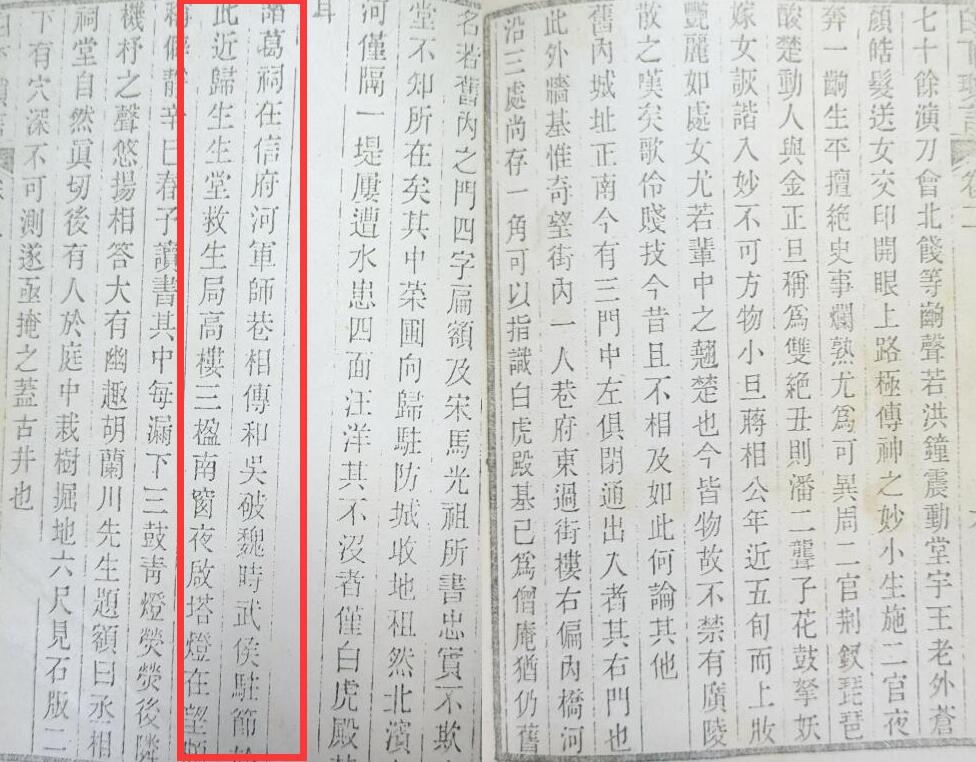 白下瑣言 卷二
七十餘演刀會北餞等齣聲若洪鐘震動堂宇王老外蒼
顏皓髮送女交印開眼上路極傳神之妙小生施二官夜
奔一齣生平擅絕史事爛熟尤爲可異周二官荆釵琵琶
酸楚動人與金正旦稱爲雙絕丑則潘二聾子花鼓拏妖
嫁女詼諧入妙不可方物小旦蔣相公年近五旬而上妝
艷麗如處女尤若輩中之翹楚也今皆物故不禁有廣陵
散之嘆矣歌伶賤技今昔且不相及如此何論其他
舊內城址正南今有三門中左俱閉通出入者其右門也
此外牆基惟奇望街內一人巷府東過街樓右偏內橋河
沿三處尚存一角可以指識白虎殿基已爲僧庵猶仍舊
名若舊內之門四字扁額及宋馬光祖所書忠實不欺
堂不知所在矣其中菜圃向歸駐防城收地租然北濱
河僅隔一堤屢遭水患四面汪洋其不沒者僅白虎殿
耳
諸葛祠在信府河軍師巷相傳和吳破魏時武侯駐節於
此近歸生生堂救生局高樓三楹南窗夜啟塔燈在望
稱僻靜辛巳春予讀書其中每漏下三鼓靑燈熒熒後隣
機杼之聲悠揚相答大有幽趣胡蘭川先生題額曰丞相
祠堂自然眞切後有人於庭中栽樹掘地六尺見石版二
下有穴深不可測遂亟掩之蓋古井也